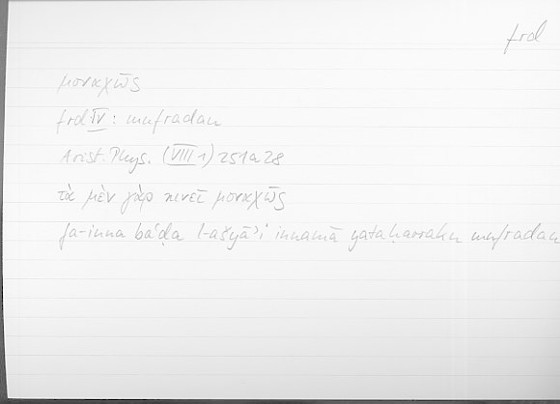 frd
μοναχῶς
frd IV: mufradan
Arist. Phys. (VIII 1) 251a28
τὰ μὲν γὰρ κινεῖ μοναχῶς
fa-inna baʿḍa l-ašyāʾi innamā yataḥarraku mufradan